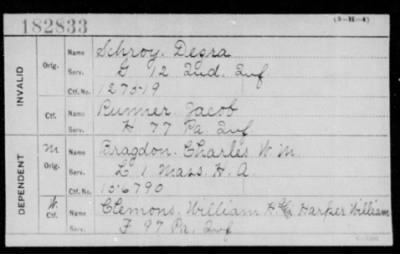 182833
(3-M-4)
INVALID
Orig. Name Schroy, Degra
Serv. G 12 Ind. Inf
Ctf. No. 12 7519
Ctf. Name Runner Jacob
Serv. H 77 Pa. Inf
DEPENDENT
M. Orig. Name Bragdon, Charles W. M.
Serv. L 1 Mass. H. A.
Ctf. No. 156790
W. Ctf. Name Clemons, William H. Harper William
Serv. F 97 Pa. Inf